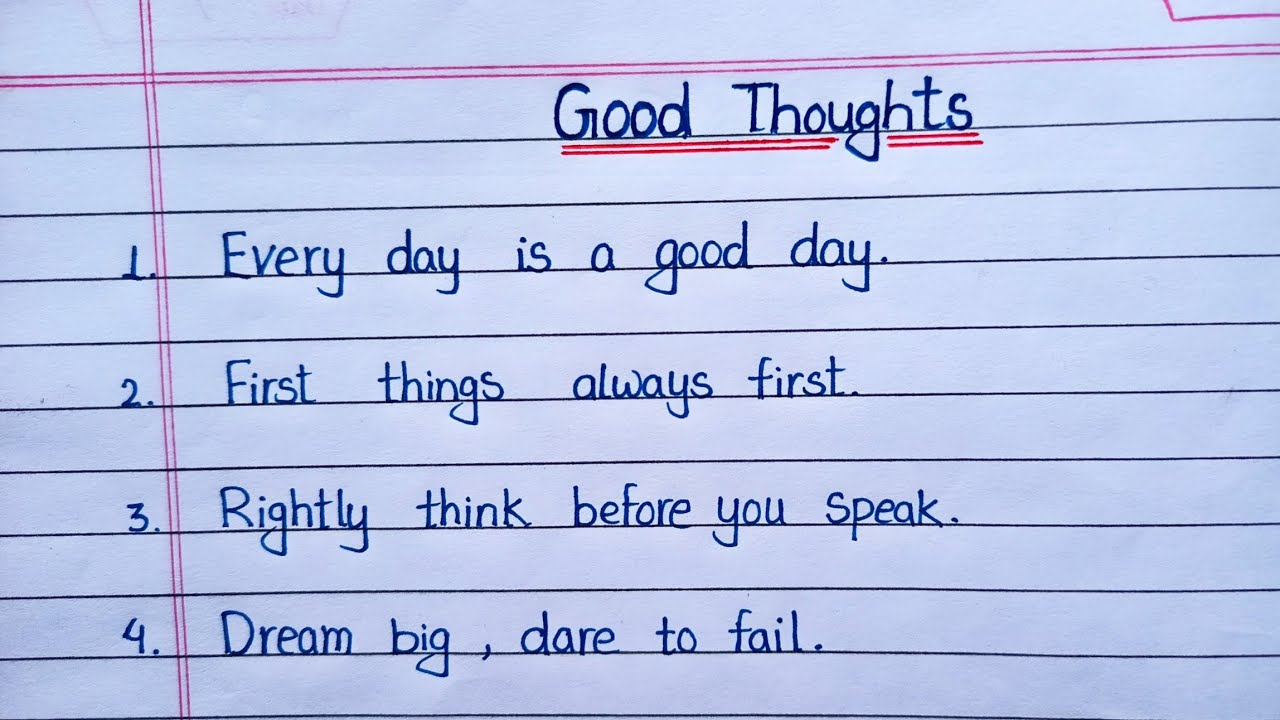 Good Thoughts
1. Every day is a good day.
2. First things always first.
3. Rightly think before you speak.
4. Dream big, dare to fail.